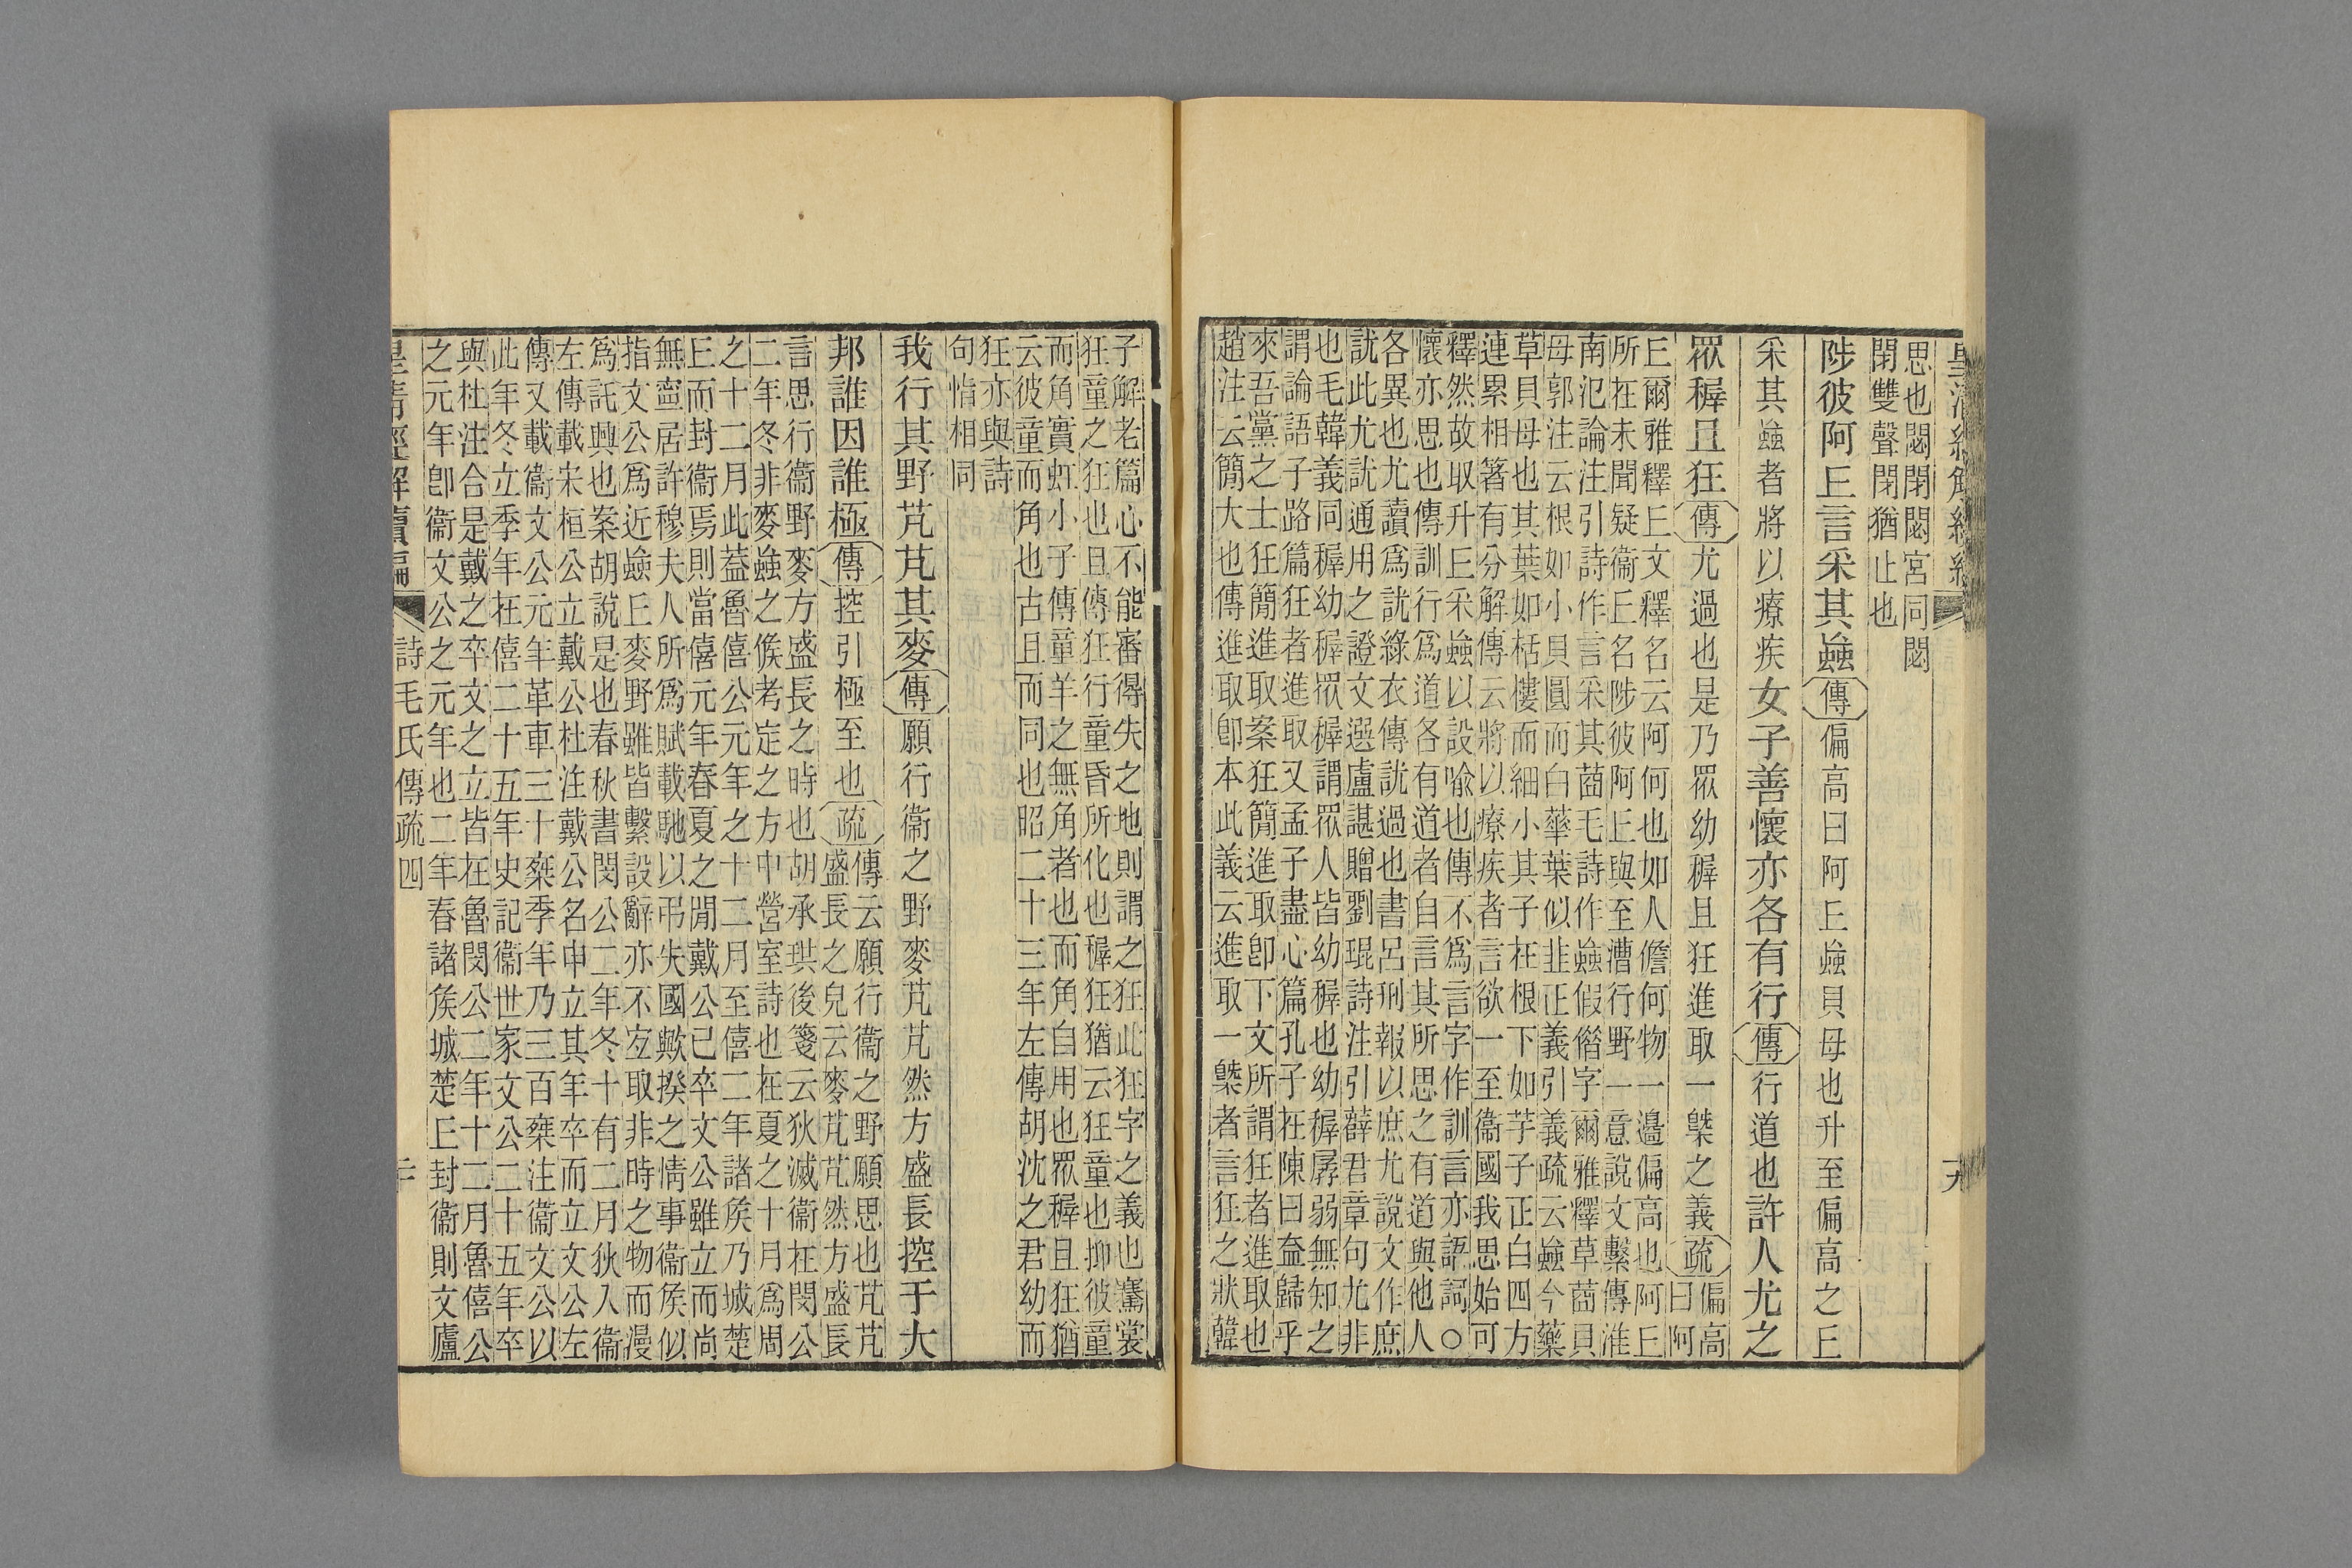 思也閟閉閟宮同閟
閉雙聲閉猶止也
陟彼阿丘言采其蝱傳偏高曰阿丘蝱貝母也升至偏高之丘
采其蝱者將以療疾女子善懷亦各有行傳行道也許人尤之
眾穉且狂傳尤過也是乃眾幼穉且狂進取一槩之義疏偏高
曰阿
丘爾雅釋丘文釋名云阿何也如人儋何物一邊偏高也阿丘
所在未聞疑衞丘名陟彼阿丘與至漕行野一意說文繫傳淮
南氾論注引詩作言采其莔毛詩作蝱假偺字爾雅釋草莔貝
母郭注云根如小貝圓而白華葉似韭正義引義疏云蝱今藥
草貝母也其葉如栝樓而細小其子在根下如芋子正白四方
連累相箸有分解傳云將以療疾者言欲一至衞國我思始可
釋然故取升丘采蝱以設喻也傳不爲言字作訓言亦語詞○
懷亦思也傳訓行爲道各有道者自言其所思之有道與他人
各異也尤讀爲訧綠衣傳訧過也書呂刑報以庶尤說文作庶
訧此尤訧通用之證文選盧諶贈劉琨詩注引薛君章句尤非
也毛韓義同穉幼穉眾穉謂眾人皆幼穉也幼穉孱弱無知之
謂論語子路篇狂者進取又孟子盡心篇孔子在陳曰盍歸乎
來吾黨之士狂簡進取案狂簡進取卽下文所謂狂者進取也
趙注云簡大也傳進取卽本此義云進取一槩者言狂之狀韓
子解老篇心不能審得失之地則謂之狂此狂字之義也騫裳
狂童之狂也且傳狂行童昏所化也穉狂猶云狂童也抑彼童
而角實虹小子傳童羊之無角者也而角自用也眾穉且狂猶
云彼童而角也古且而同也昭二十三年左傳胡沈之君幼而
狂亦與詩
句恉相同
我行其野芃芃其麥傳願行衞之野麥芃芃然方盛長控于大
邦誰因誰極傳控引極至也疏傳云願行衞之野願思也芃芃
盛長之皃云麥芃芃然方盛長
言思行衞野麥方盛長之時也胡承珙後箋云狄滅衞在閔公
二年冬非麥蝱之候考定之方中營室詩也在夏之十月爲周
之十二月此蓋魯僖公元年之十二月至僖二年諸矦乃城楚
丘而封衞焉則當僖元年春夏之閒戴公已卒文公雖立而尚
無寍居許穆夫人所爲賦載馳以弔失國歟揆之情事衞矦似
指文公爲近蝱丘麥野雖皆繫設辭亦不宐取非時之物而漫
爲託興也案胡說是也春秋書閔公二年冬十有二月狄入衞
左傳載宋桓公立戴公杜注戴公名申立其年卒而立文公左
傳又載衞文公元年革車三十椉季年乃三百椉注衞文公以
此年冬立季年在僖二十五年史記衞世家文公二十五年卒
與杜注合是戴之卒文之立皆在魯閔公二年十二月魯僖公
之元年卽衞文公之元年也二年春諸矦城楚丘封衞則文廬
皇淸經解續編 詩毛氏傳疏四